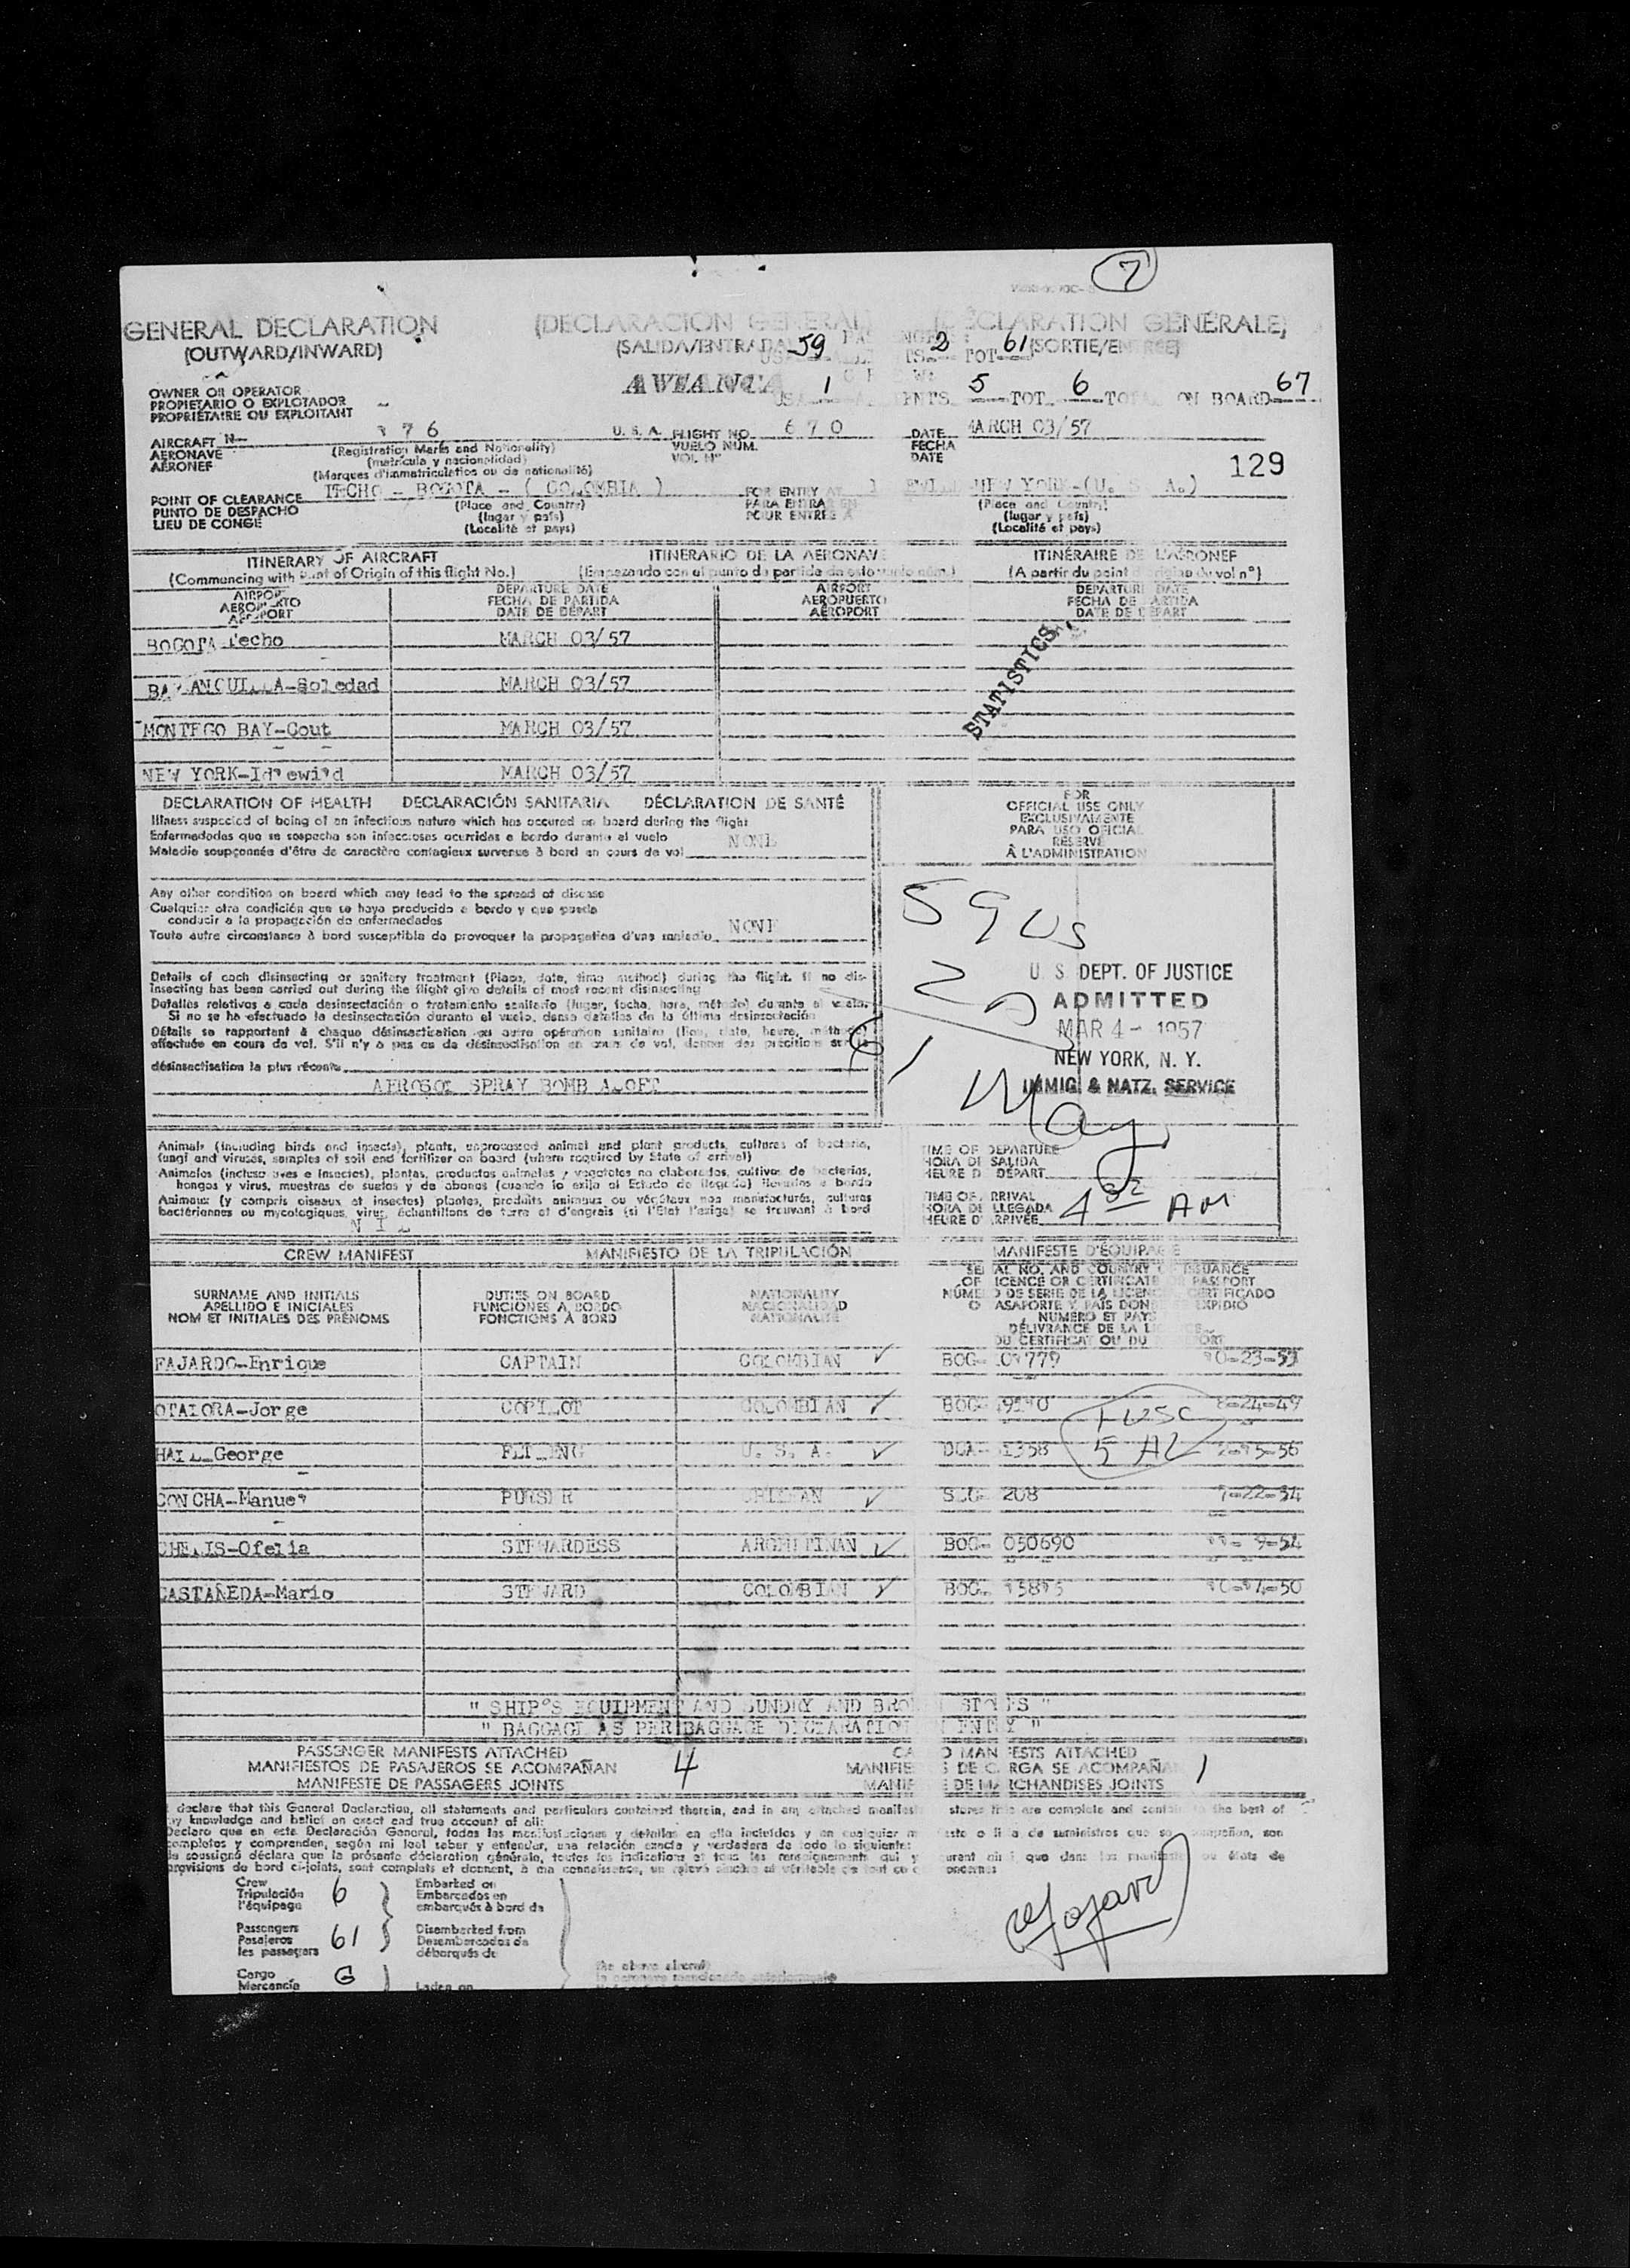 7
GENERAL DECLARATION (DECLARACION GENERAL) (DÉCLARATION GÉNÉRALE)
(OUTWARD/INWARD) (SALIDA/ENTRADA) 59 2 TOT 61 (SORTIE/ENTRÉE)
OWNER OR OPERATOR AVIANCA 1 5 TOT 6 ON BOARD 67
PROPIETARIO O EXPLOTADOR
PROPRIÉTAIRE OU EXPLOITANT
AIRCRAFT N 376 U. S. A. FLIGHT NO. 670 DATE MARCH 03/57
AERONAVE (Registration Marks and Nationality) VUELO NÚM. FECHA
AÉRONEF (matrícula y nacionalidad) VOL Nº DATE
(Marques d'immatriculatios ou de nationalité) 129
POINT OF CLEARANCE TECHO - BOGOTA - ( COLOMBIA ) FOR ENTRY AT NEW YORK-(U. S. A.)
PUNTO DE DESPACHO (Place and Country) PARA ENTRAR EN (Place and Country)
LIEU DE CONGÉ (lugar y país) POUR ENTRÉE À (lugar y país)
(Localité et pays) (Localité et pays)
ITINERARY OF AIRCRAFT ITINERARIO DE LA AERONAVE ITINÉRAIRE DE L'AÉRONEF
(Commencing with Point of Origin of this flight No.) (Empezando con el punto de partida de este vuelo núm.) (A partir du point d'origine du vol nº)
AIRPORT DEPARTURE DATE AIRPORT DEPARTURE DATE
AEROPUERTO FECHA DE PARTIDA AEROPUERTO FECHA DE PARTIDA
AÉROPORT DATE DE DÉPART AÉROPORT DATE DE DÉPART
BOGOTA Techo MARCH 03/57
STATISTICS
BARANQUILLA-Soledad MARCH 03/57
MONTEGO BAY-Gout MARCH 03/57
NEW YORK-Idlewild MARCH 03/57
DECLARATION OF HEALTH DECLARACIÓN SANITARIA DÉCLARATION DE SANTÉ
Illness suspected of being of an infectious nature which has occured on board during the flight
Enfermedades que se sospecha son infecciosas ocurridas a bordo durante el vuelo NONE
Maladie soupçonnée d'être de caractère contagieux survenue à bord en cours de vol
FOR
OFFICIAL USE ONLY
EXCLUSIVAMENTE
PARA USO OFICIAL
RÉSERVÉ
À L'ADMINISTRATION
Any other condition on board which may lead to the spread of disease
Cualquier otra condición que se haya producido a bordo y que pueda
conducir a la propagación de enfermedades NONE
Toute autre circonstance à bord susceptible de provoquer la propagation d'une maladie
59 US
Details of each disinsecting or sanitary treatment (Place, date, time method) during the flight. If no dis-
insecting has been carried out during the flight give details of most recent disinsecting
Detalles relativos a cada desinsectación o tratamiento sanitario (lugar, fecha, hora, método) durante el vuelo.
Si no se ha efectuado la desinsectación durante el vuelo, dense detalles de la última desinsectación
Détails se rapportant à chaque désinsectisation ou autre opération sanitaire (lieu, date, heure, méthode)
effectuée en cours de vol. S'il n'y a pas eu de désinsectisation en cours de vol, donner des précisions sur la
désinsectisation la plus récente
AEROSOL SPRAY BOMB ALOFT
2 A
61
U. S. DEPT. OF JUSTICE
ADMITTED
MAR 4 - 1957
NEW YORK, N. Y.
IMMIG. & NATZ. SERVICE
May
Animals (including birds and insects), plants, unprocessed animal and plant products, cultures of bacteria,
fungi and viruses, samples of soil and fertilizer on board (where required by State of arrival)
Animales (incluso aves e insectos), plantas, productos animales y vegetales no elaborados, cultivos de bacterias,
hongos y virus, muestras de suelos y de abonos (cuando lo exija el Estado de llegada) llevados a bordo
Animaux (y compris oiseaux et insectes) plantes, produits animaux ou végétaux non manufacturés, cultures
bactériennes ou mycologiques, virus, échantillons de terre et d'engrais (si l'État l'exige) se trouvant à bord
NIL
TIME OF DEPARTURE
HORA DE SALIDA
HEURE DE DÉPART
TIME OF ARRIVAL
HORA DE LLEGADA 4 32 AM
HEURE D'ARRIVÉE
CREW MANIFEST MANIFIESTO DE LA TRIPULACIÓN MANIFESTE D'ÉQUIPAGE
SURNAME AND INITIALS
APELLIDO E INICIALES
NOM ET INITIALES DES PRÉNOMS
DUTIES ON BOARD
FUNCIONES A BORDO
FONCTIONS À BORD
NATIONALITY
NACIONALIDAD
NATIONALITÉ
SERIAL NO. AND COUNTRY OF ISSUANCE
OF LICENCE OR CERTIFICATE OR PASSPORT
NÚMERO DE SERIE DE LA LICENCIA, CERTIFICADO
O PASAPORTE Y PAÍS DONDE SE EXPIDIÓ
NUMÉRO ET PAYS
DÉLIVRANCE DE LA LICENCE
DU CERTIFICAT OU DU PASSPORT
FAJARDO-Enrique CAPTAIN COLOMBIAN ✓ BOG- 10-23-53
OTALORA-Jorge COPILOT COLOMBIAN ✓ BOG- 8-24-49
1 USC
5 AL
HALL-George FLT ENG U. S. A. ✓ 1358
CONCHA-Manuel PURSER ✓ 208 7-22-54
CHELIS-Ofelia STEWARDESS ARGENTINAN ✓ BOG- 050690 11- 9-54
CASTAÑEDA-Mario STEWARD COLOMBIAN ✓ BOG- 10-17-50
" SHIP'S EQUIPMENT AND SUNDRY AND BROKEN STORES "
" BAGGAGE AS PER BAGGAGE DECLARATION ENTRY "
PASSENGER MANIFESTS ATTACHED CARGO MANIFESTS ATTACHED
MANIFIESTOS DE PASAJEROS SE ACOMPAÑAN 4 MANIFIESTOS DE CARGA SE ACOMPAÑAN 1
MANIFESTE DE PASSAGERS JOINTS MANIFESTE DE MARCHANDISES JOINTS
declare that this General Declaration, all statements and particulars contained therein, and in any attached manifests stores lists are complete and contain to the best of
my knowledge and belief an exact and true account of all:
Declaro que en esta Declaración General, todas las manifestaciones y detalles en ella incluídos y en cualquier manifiesto o lista de suministros que se acompañan, son
completos y comprenden, según mi leal saber y entender, una relación exacta y verdadera de todo lo siguiente:
Je soussigné déclara que la présente déclaration générale, toutes les indications et tous les renseignements qui y figurant ainsi que dans les manifestes ou états de
provisions de bord ci-joints, sont complets et donnent, à ma connaissance, un relevé exacte et véritable de tout ce
Crew
Tripulación 6
l'équipage
Embarked on
Embarcados en
embarqués à bord de
Passengers
Pasajeros 61
les passagers
Disembarked from
Desembarcados de
débarqués de
Cargo G
Mercancía
Laden on
The above aircraft